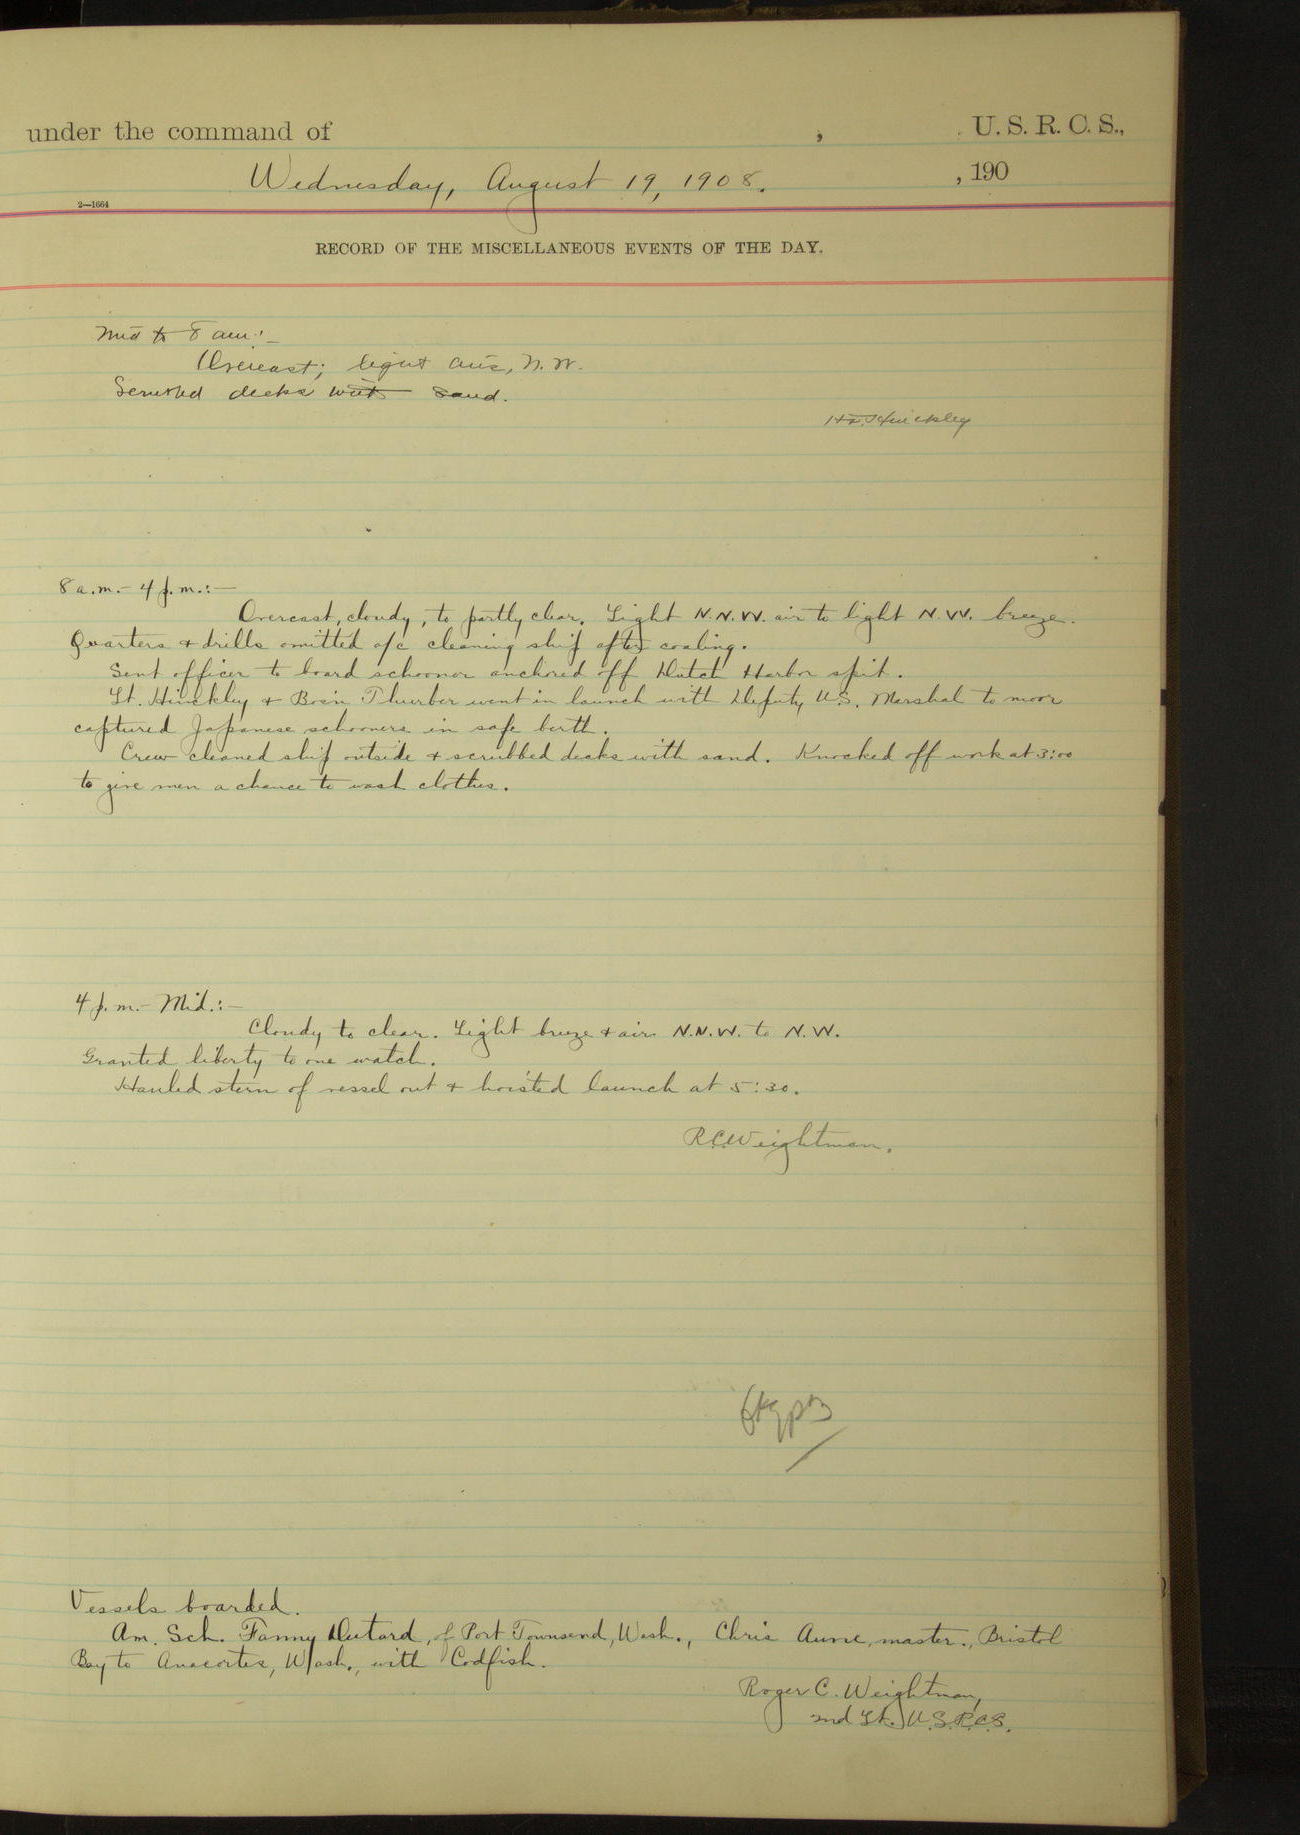 under the command of , U. S. R. C. S.,
Wednesday, August 19, 1908. , 190
2—1664
RECORD OF THE MISCELLANEOUS EVENTS OF THE DAY.
Mid to 8 am:—
Overcast; light airs, N.W.
Scrubbed decks with sand.
Hinckley
8 a.m.- 4 p.m.:—
Overcast, cloudy, to partly clear. Light N.N.W. air to light N.W. breeze.
Quarters + drills omitted a/c cleaning ship after coaling.
Sent officer to board schooner anchored off Dutch Harbor spit.
Lt. Hinckley + Bo's'n Thurber went in launch with Deputy U.S. Marshal to moor
captured Japanese schooners in safe berth.
Crew cleaned ship outside + scrubbed decks with sand. Knocked off work at 3:00
to give men a chance to wash clothes.
4 p.m.- Mid.:—
Cloudy to clear. Light breeze + air N.N.W. to N.W.
Granted liberty to one watch.
Hauled stern of vessel out + hoisted launch at 5:30.
R.C. Weightman.
Vessels boarded.
Am. Sch. Fanny Dutard, of Port Townsend, Wash., Chris Aune, master., Bristol
Bay to Anacortes, Wash., with Codfish.
Roger C. Weightman,
2nd Lt. U.S.R.C.S.